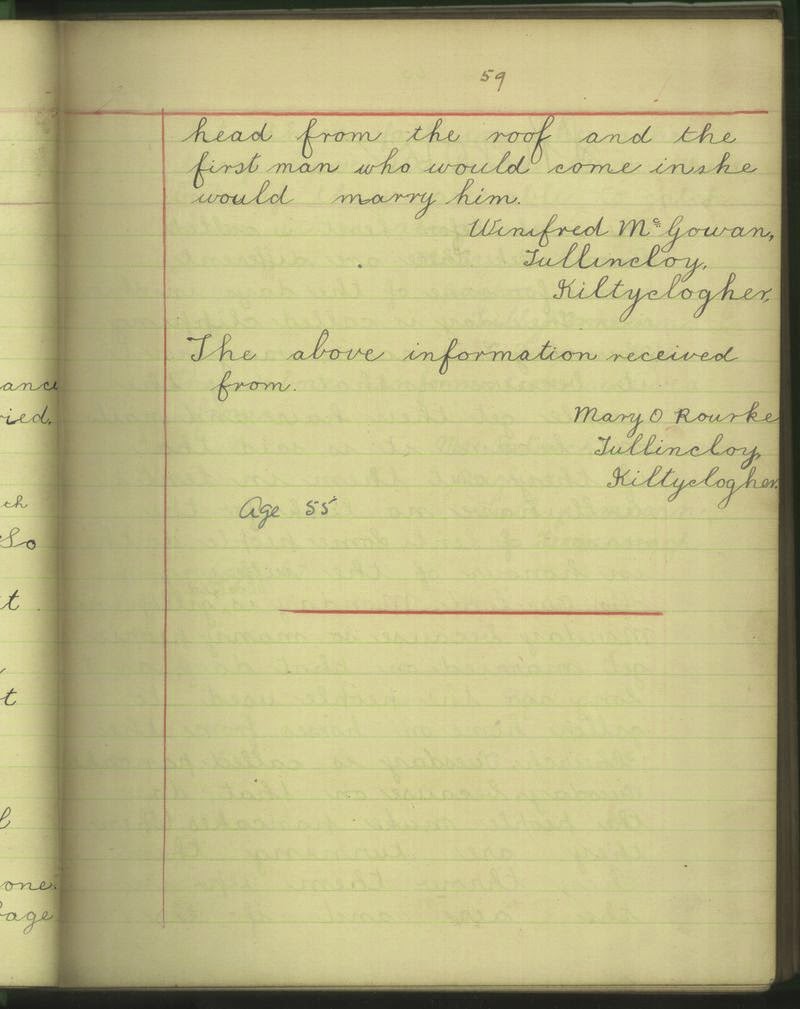 59
head from the roof and the
first man who would come in she
would marry him.
Winifred McGowan,
Tullincloy,
Kiltyclogher,
The above information received
from.
Mary O Rourke
Tullincloy,
Kiltyclogher.
Age 55
ried.
ch
So
t
t
one.
bage